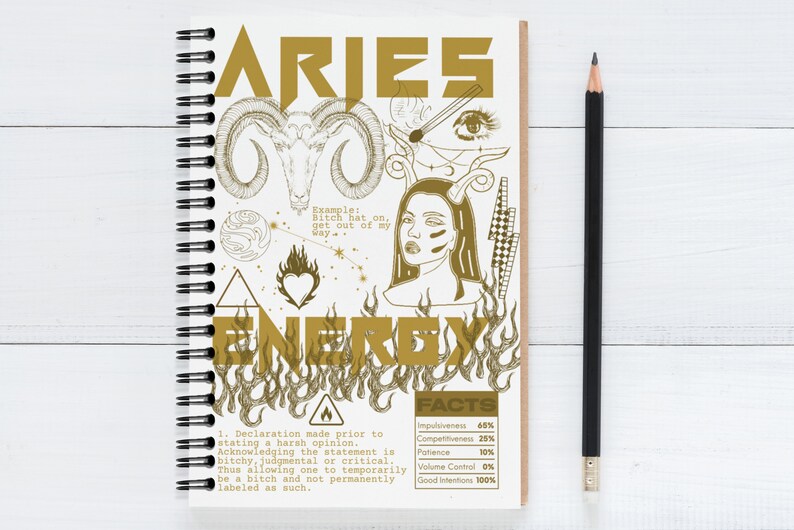 ARIES
Example:
Bitch hat on,
get out of my
way.
ENERGY
FACTS
Impulsiveness 65%
Competitiveness 25%
Patience 10%
Volume Control 0%
Good Intentions 100%
1. Declaration made prior to
stating a harsh opinion.
Acknowledging the statement is
bitchy,judgmental or critical.
Thus allowing one to temporarily
be a bitch and not permanently
labeled as such.